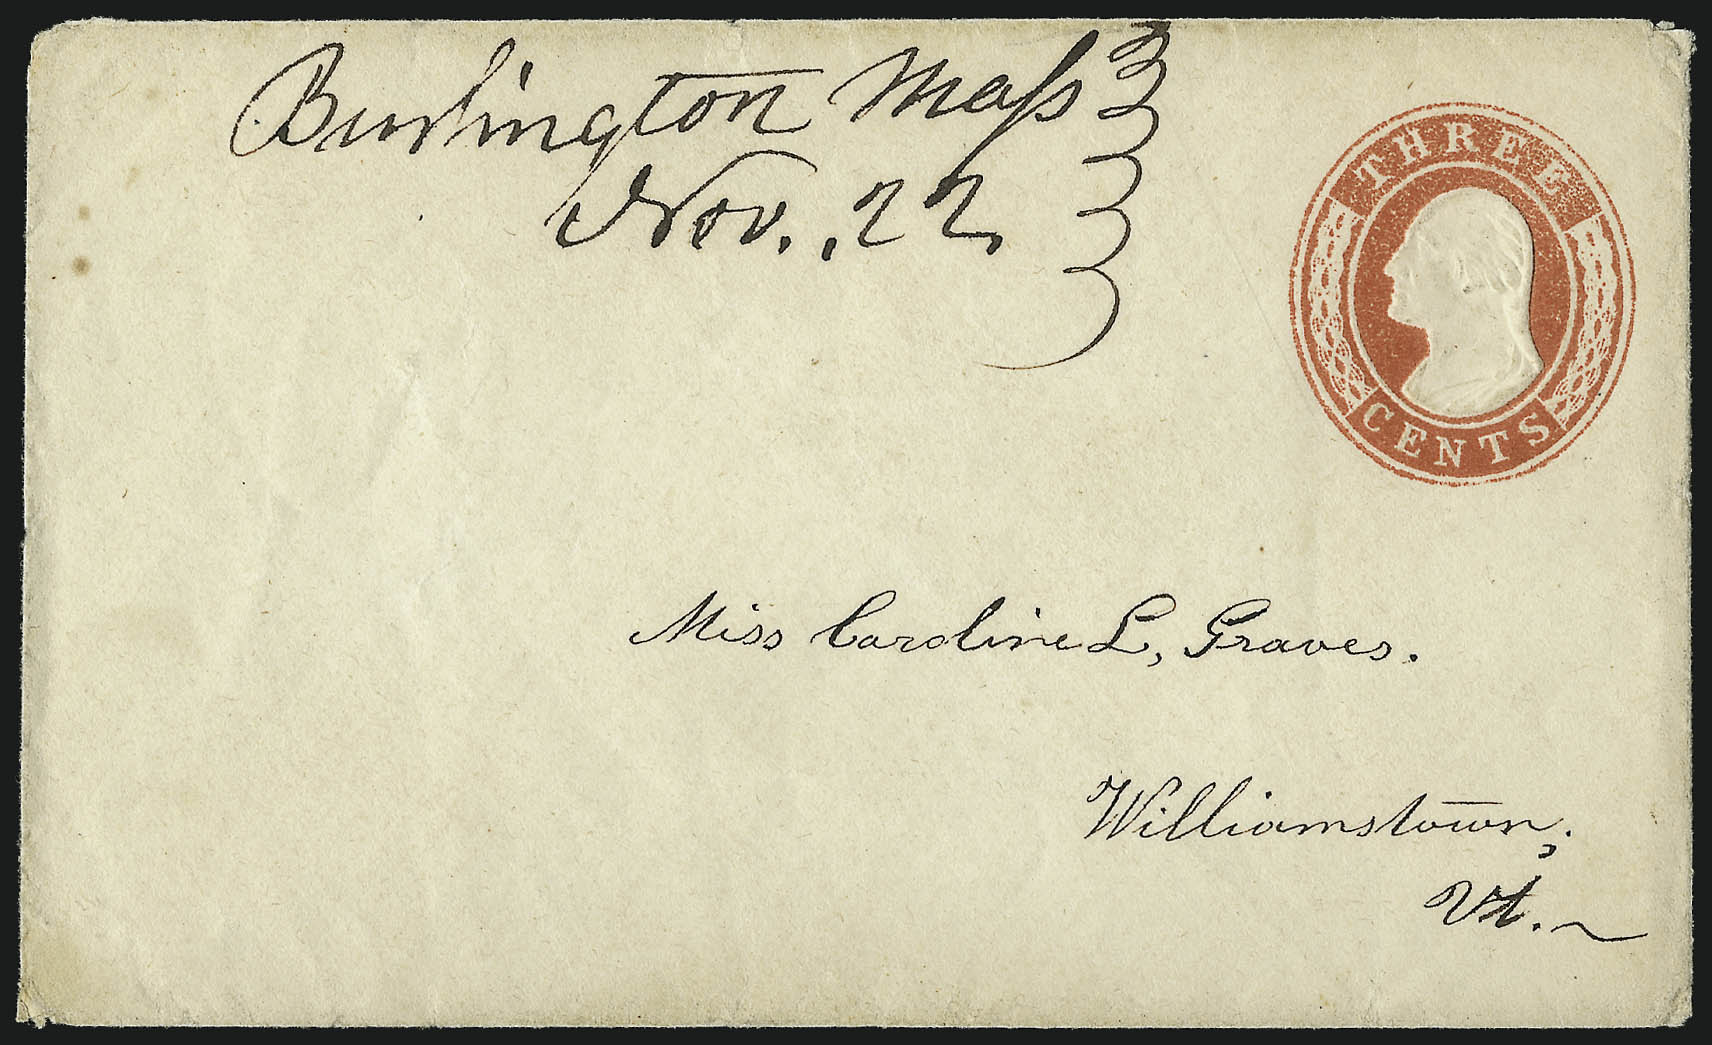 Burlington Maſs
Nov. 22
THREE
CENTS
Miss Caroline L, Graves.
Williamstown,
Vt.